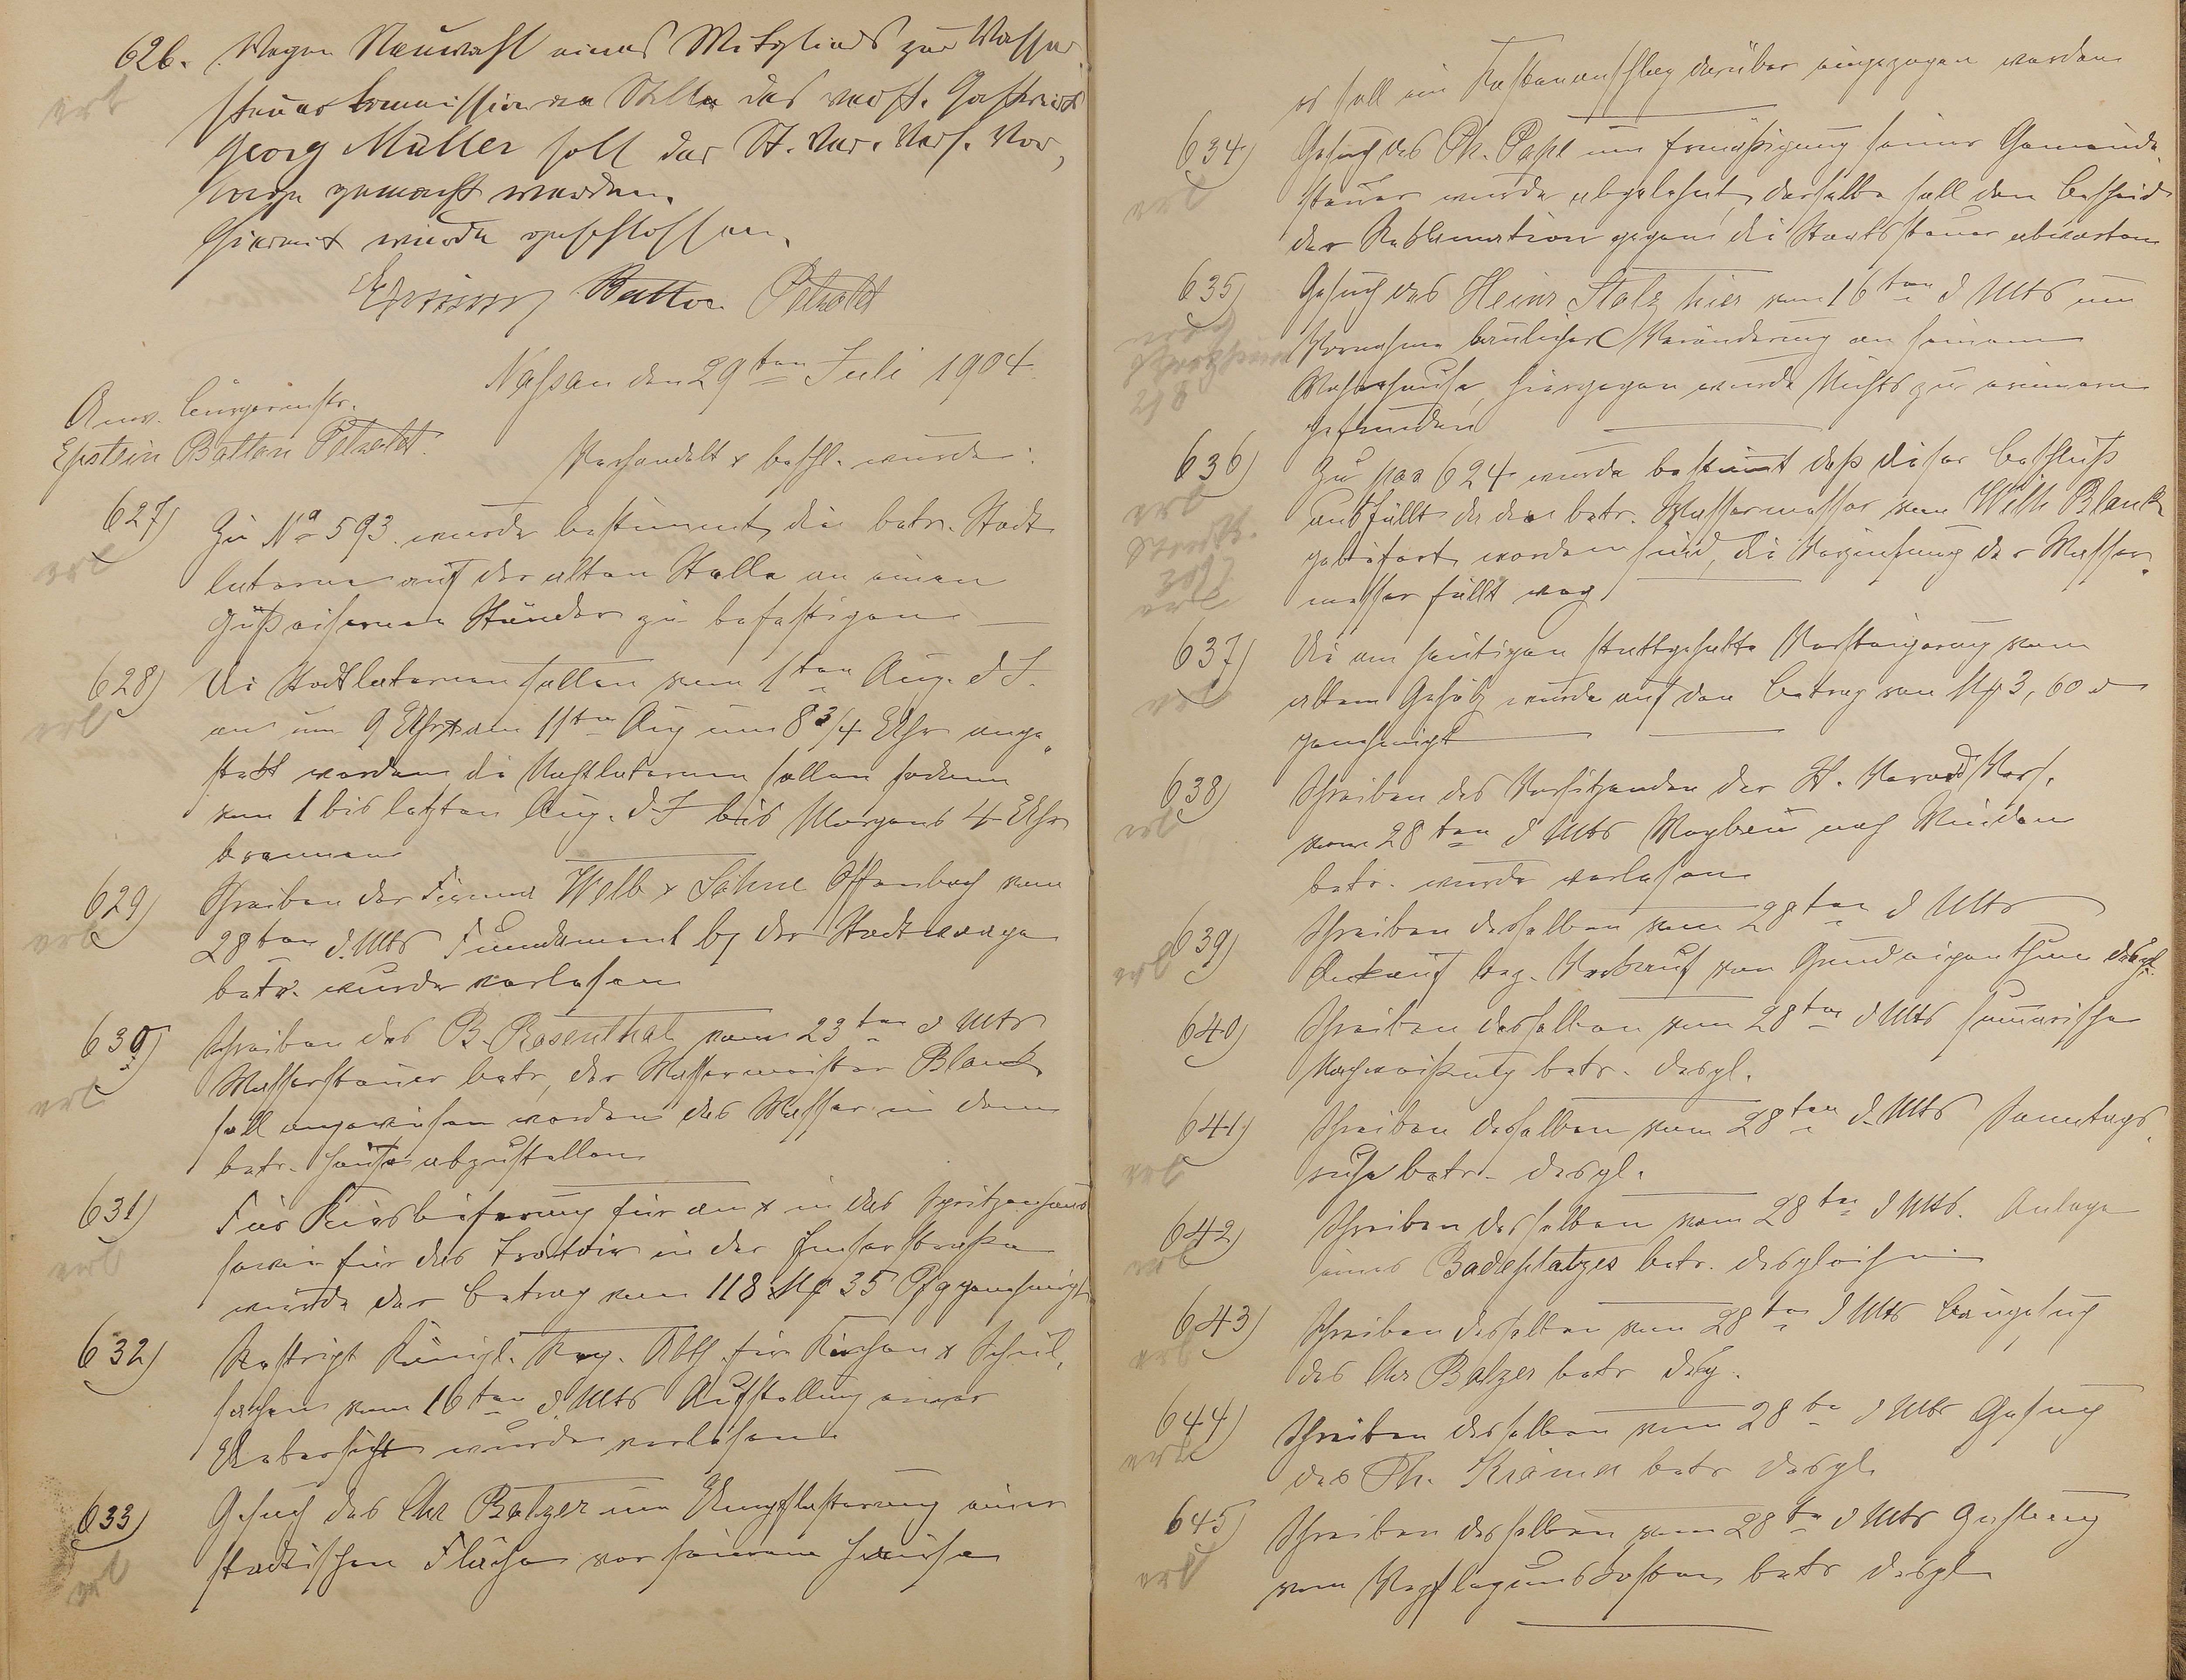 626. Wegen Neuwahl eines Mitglieds zur Wasser
erl
steuerkommission an Stelle des verst. Gastwirt
Georg Müller soll der St. Ver. Vers. Vor-
lage gemacht werden.
Hiermit wurde geschlossen.
Epstein Balton Petzoldt
Nassau den 29ten Juli 1904
Anw. Bürgermstr.
Epstein Balton Petzoldt.
Verhandelt & beschl. wurde:
627) Zu No 593. wurde bestimmt, die betr. Stadt
erl
laterne auf der alten Stelle an einen
gußeisernen Ständer zu befestigen
628) Die Stadtlaternen sollen vom 1ten Aug. d J.
erl
an um 9 Uhr & am 11ten Aug um 8 3/4 Uhr ange-
steckt werden die Nachtlaternen sollen sodann
vom 1 bis letzten Aug. d J bis Morgens 4 Uhr
brennen
629) Schreiben der Firma Welb & Söhne Offenbach vom
erl
28ten d. Mts Fundament bz der Stadtwaage
betr. wurde verlesen
630) Schreiben des B. Rosenthal vom 23ten d Mts
erl
Wassersteuer betr, der Wassermeister Blank
soll angewiesen werden das Wasser in dem
betr. Hause abzustellen
631) Für Kieslieferung für an & in das Spritzenhaus
erl
sowie für das Trottoir in der Emserstraße
wurde der Betrag von 118 M 35 Pfg genehmigt
632) Restript Königl. Reg. Abth. für Kirchen & Schul-
sachen vom 16ten d. Mts Aufstellung einer
Uebersicht wurde verlesen
633) Gesuch des Chr Balzer um Umpflasterung einer
erl
städtischen Fläche vor seinem Hause
es soll ein Kostenanschlag darüber eingezogen werden
634) Gesuch des Ph. Pahl um Ermäßigung seiner Gemeinde-
erl
steuer wurde abgelehnt, derselbe soll den Bescheid
der Reklamation gegen die Staatssteuer abwarten
635) Gesuch des Heinr Stolz hier vom 16ten d Mts um
Vornahme baulicher Veränderung an seinem
2/8
Wohnhause, hiergegen wurde Nichts zu erinnern
gefunden
636) Zu pos 624 wurde bestimmt daß dieser Beschluß
erl
ausfällt da die betr. Wassermesser von Wilh Blank
geliefert worden sind, die Verzinsung der Wasser-
erl
messer fällt weg
637) Die am heutigen stattgehabte Versteigerung von
erl
altem Gehölz wurde auf den Betrag von M 3,60
genehmigt
638) Schreiben des Vorsitzenden der St. Verord Vers.
erl
vom 28ten d Mts Wegbau nach Winden
betr. wurde verlesen
639) Schreiben desselben vom 28ten d Mts
erl
Ankauf bez. Verkauf von Grundeigenthum desgl.
640) Schreiben desselben vom 28ten d Mts summarische
Nachweisung betr. desgl.
641) Schreiben desselben vom 28ten d. Mts Sonntags-
erl
ruhe betr. desgl.
642) Schreiben desselben vom 28ten d Mts. Anlage
erl
eines Badeplatzes betr. desgleichen
643) Schreiben desselben vom 28ten d Mts Baugesuch
erl
des Chr Balzer betr desg.
644) Schreiben desselben vom 28te d Mts Gesuch
erl
des Ph. Krämer betr desgl.
645) Schreiben desselben vom 28te d Mts
erl
von Verpflegungskosten betr desgl